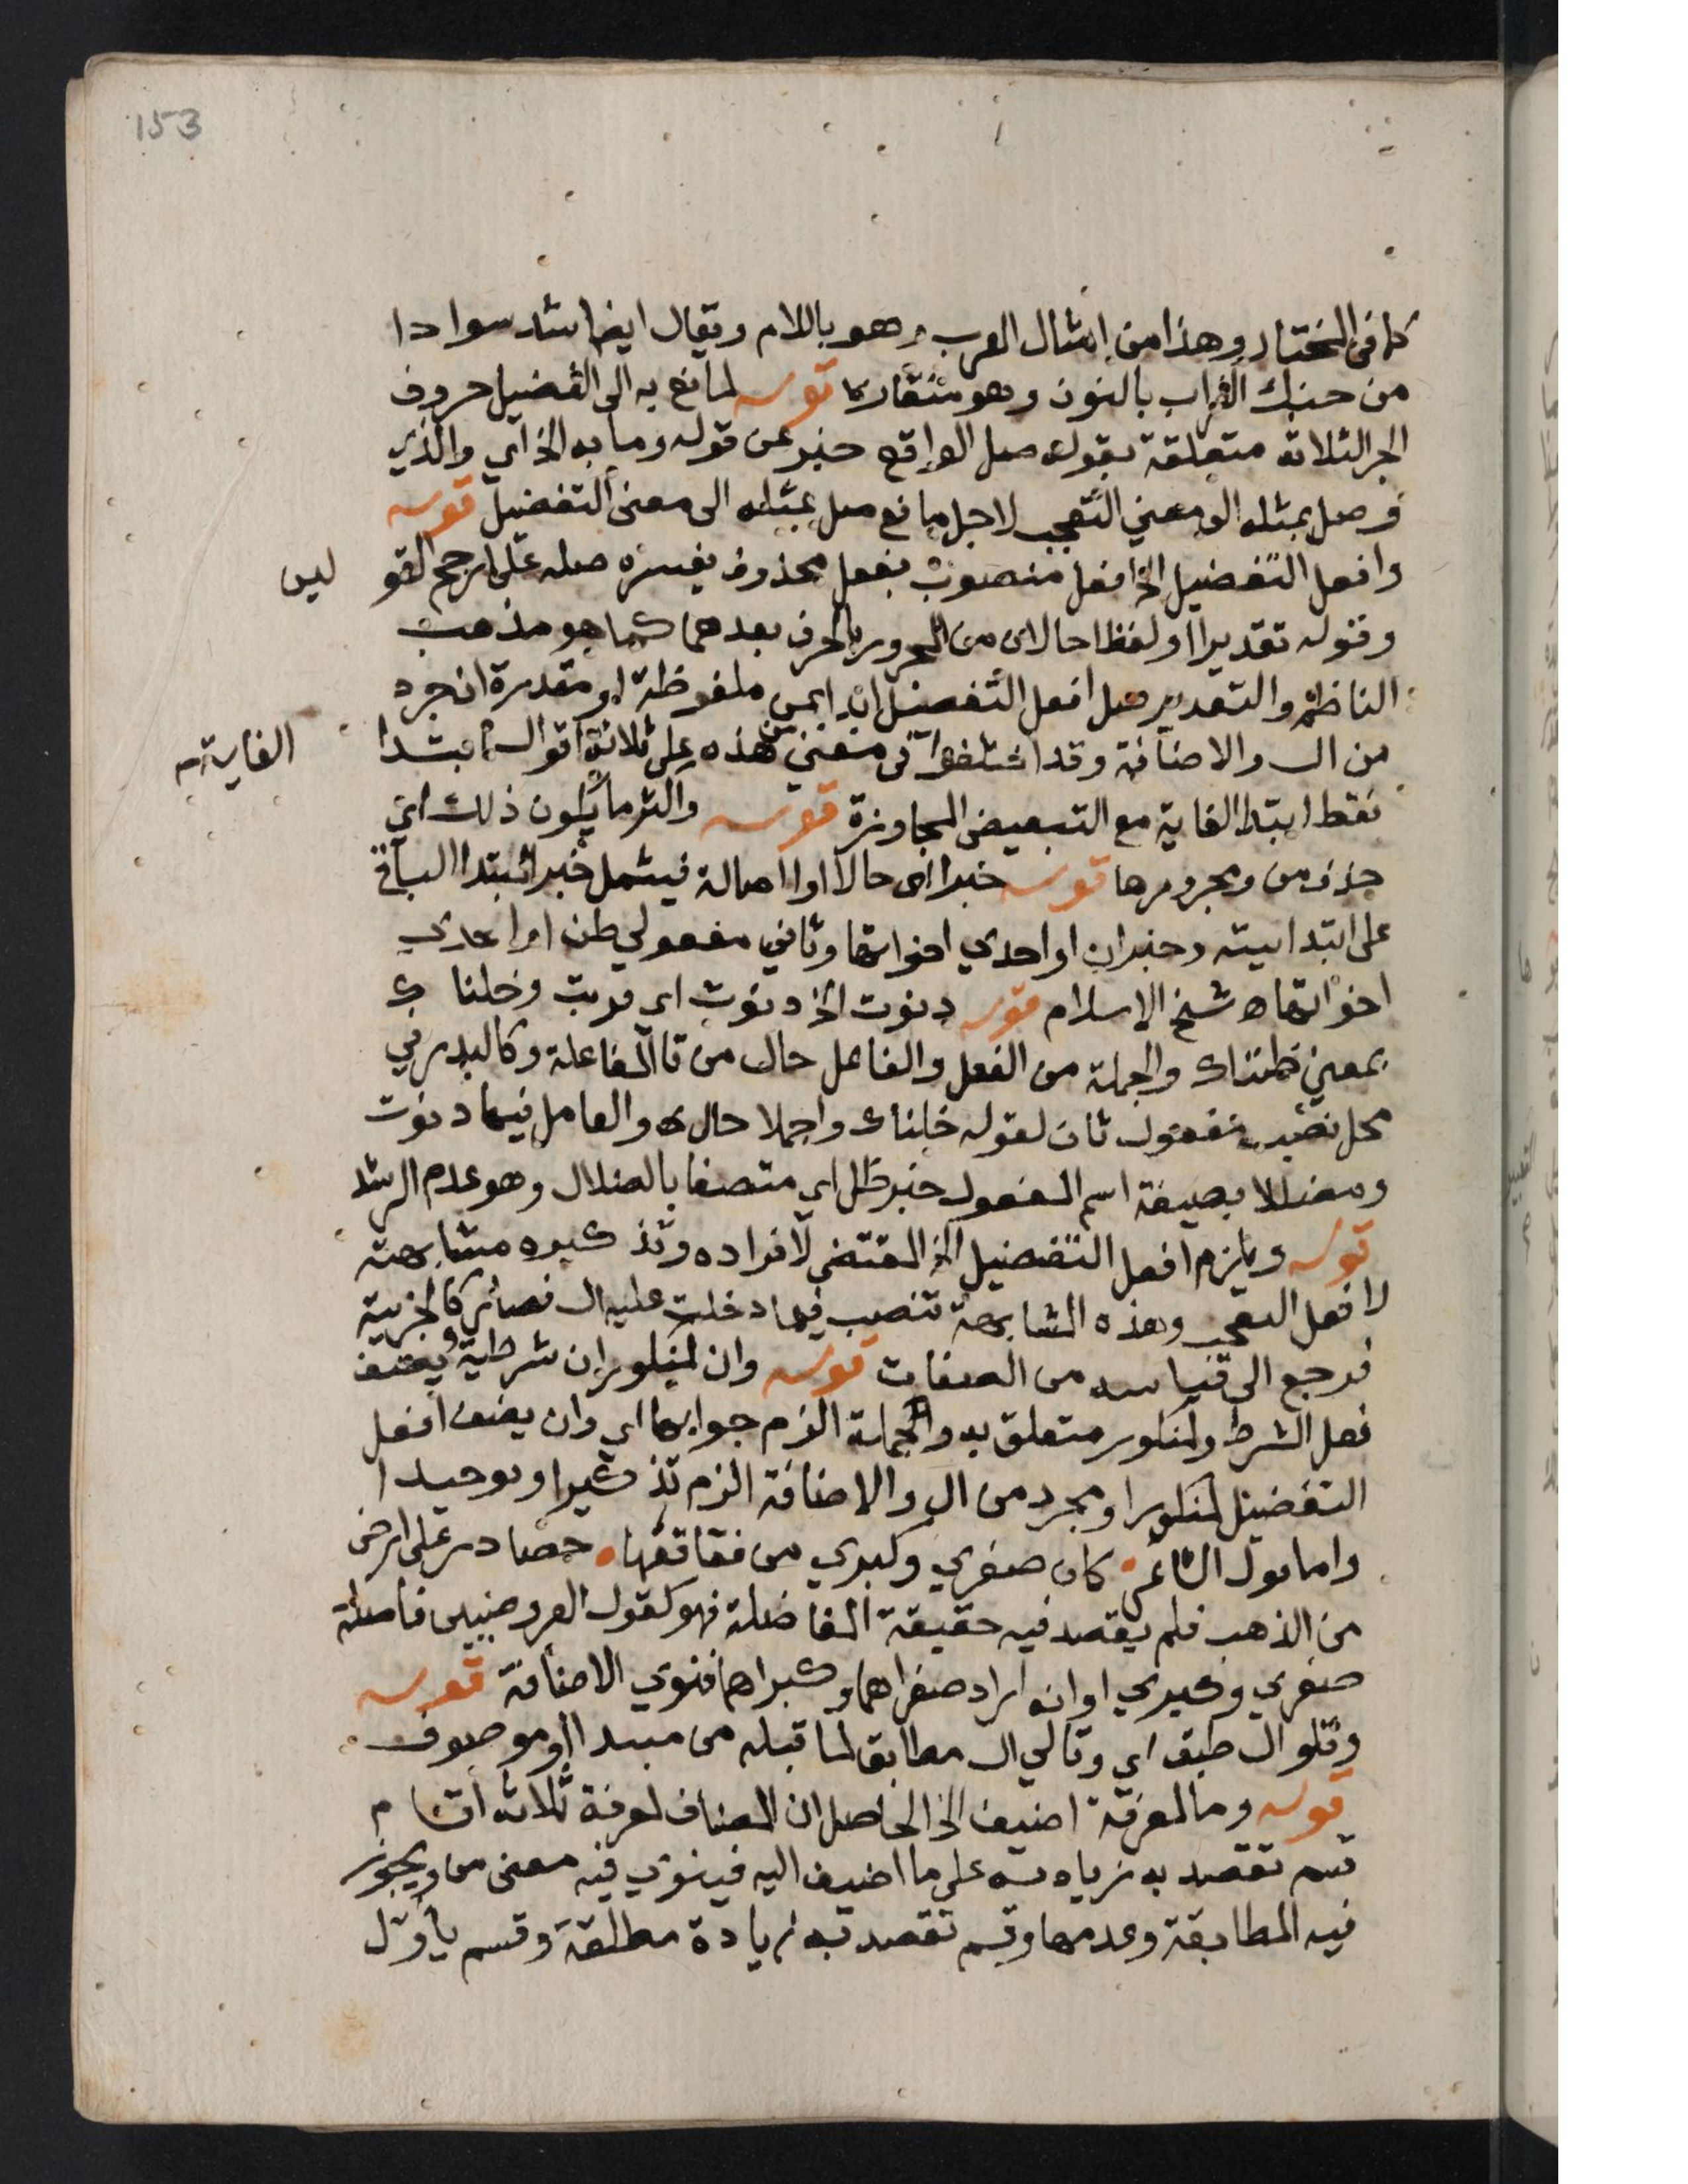 153
كما في المختار وهذا من امثال العرب وهو باللام ويقال ايضا اشد سوادا
من حنك الغراب بالنون وهو منقارها قوله لمانع به الى التفضيل حروف
الجر الثلاثة متعلقة بقوله صل الواقع خبر عن قوله وما به الخ اي والذي
وصل بمثله الى معني التعجب لاجل مانع صل بمثله الى معنى التفضيل قوله
وافعل التفضيل الخ افعل منصوب بفعل محذوف يفسره صله على ارجح القو
لين
وقوله تقديرا او لفظا حالان من المجرور بالحرف بعدهما كما هو مذهب
الناظم والتقدير صل افعل التفضيل ابدا بمن ملفوظة او مقدرة ان جرد
من ال والاضافة وقد اختلفوا في معني من هذه على ثلاثة اقوال ابتدا
الغاية
فقط ابتدا الغاية مع التبعيض المجاوزة قوله واكثر ما يكون ذلك اي
حذف من ومجرورها قوله خبرا اي حالا او اصالة فيشمل خبر المبتدا الباقي
على ابتدائيته وخبر ان او احدي اخواتها وثاني مفعولي ظن او احدي
اخواتها ه شيخ الاسلام قوله دنوت الخ دنوت اي قربت وخلناك
بمعني ظنناك والجملة من الفعل والفاعل حال من تا الفاعلة وكالبدر في
محل نصب مفعول ثان لقوله خلناك واجملا حال والعامل فيها دنوت
ومضللا بصيغة اسم المفعول خبر ظل اي متصفا بالضلال وهو عدم الرشد
قوله ويلزم افعل التفضيل الخ المقتضي لافراده وتذكيره مشابهته
لافعل التعجب وهذه المشابهة تنصب فيما دخلت عليه ال فصائر كالجزيية
فرجع الى قياسه من الصفات قوله وان لمنكور ان شرطية ويضف
فعل الشرط ولمنكور متعلق به والجملة الزم جوابها اي وان يضف افعل
التفضيل لمنكور او مجرد من ال والاضافة الزم تذكيرا وتوحيدا
واما قول الشاعر كان صغري وكبري من فقاقعها حصا در على ارض
من الذهب فلم يقصد فيه حقيقة المفاضلة فهو كقول العروضيين فاصلة
صغري وكبري او انه اراد صغراها وكبراها فنوي الاضافة قوله
وتلو ال طبق اي وتالي ال مطابق لما قبله من مبتدا او موصوف
قوله وما لمعرفة اضيف الخ الحاصل ان المضاف لمعرفة ثلاثة اقسام
قسم تقصد به زيادته على ما اضيف اليه فينوي فيه معنى من ويجوز
فيه المطابقة وعدمها وقسم تقصد به زيادة مطلقة وقسم يأول